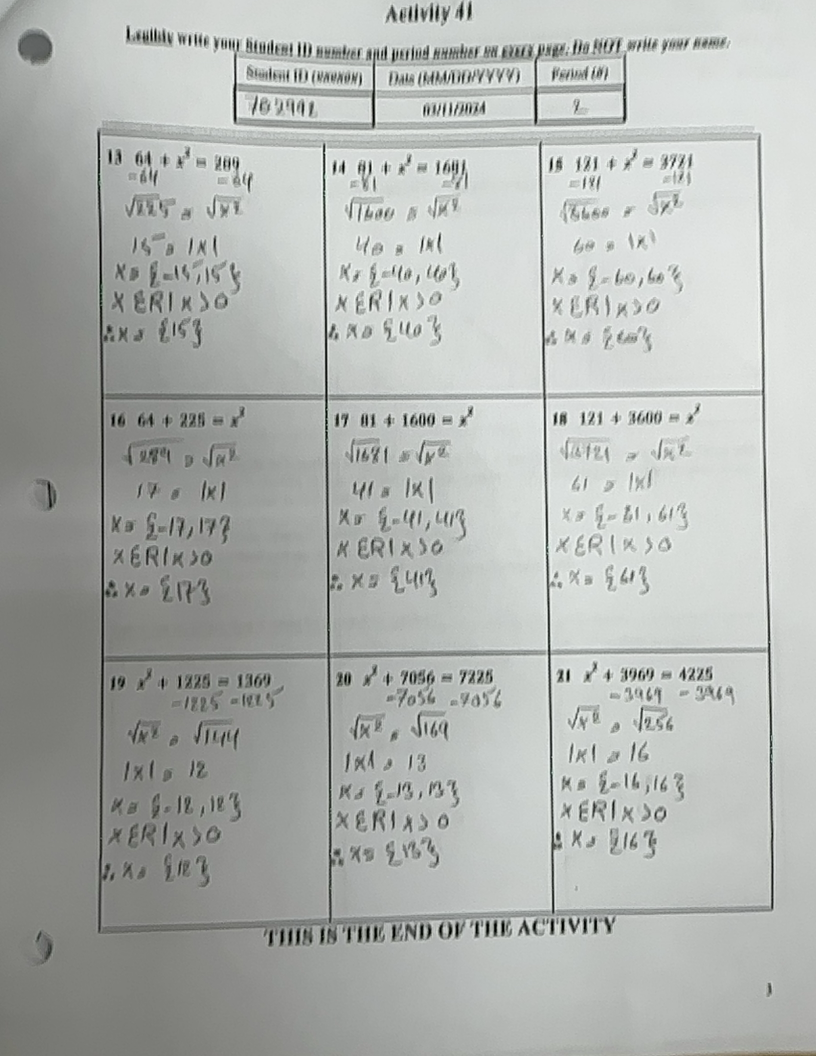 Activity 41
Legibly write your Student ID number and period number on every page. Do NOT write your name.
Student ID (######) Date (MM/DD/YYYY) Period (#)
03/11/2024 2
13 64 + x² = 289
-64 -64
√225 = √x²
15 = |x|
x = {-15, 15}
x ∈ R | x > 0
∴ x = {15}
14 81 + x² = 1681
-81 -81
√1600 = √x²
40 = |x|
x = {-40, 40}
x ∈ R | x > 0
∴ x = {40}
15 121 + x² = 3721
-121 -121
√3600 = √x²
60 = |x|
x = {-60, 60}
x ∈ R | x > 0
∴ x = {60}
16 64 + 225 = x²
√289 = √x²
17 = |x|
x = {-17, 17}
x ∈ R | x > 0
∴ x = {17}
17 81 + 1600 = x²
√1681 = √x²
41 = |x|
x = {-41, 41}
x ∈ R | x > 0
∴ x = {41}
18 121 + 3600 = x²
√3721 = √x²
61 = |x|
x = {-61, 61}
x ∈ R | x > 0
∴ x = {61}
19 x² + 1225 = 1369
-1225 -1225
√x² = √144
|x| = 12
x = {-12, 12}
x ∈ R | x > 0
∴ x = {12}
20 x² + 7056 = 7225
-7056 -7056
√x² = √169
|x| = 13
x = {-13, 13}
x ∈ R | x > 0
∴ x = {13}
21 x² + 3969 = 4225
-3969 -3969
√x² = √256
|x| = 16
x = {-16, 16}
x ∈ R | x > 0
∴ x = {16}
THIS IS THE END OF THE ACTIVITY
3